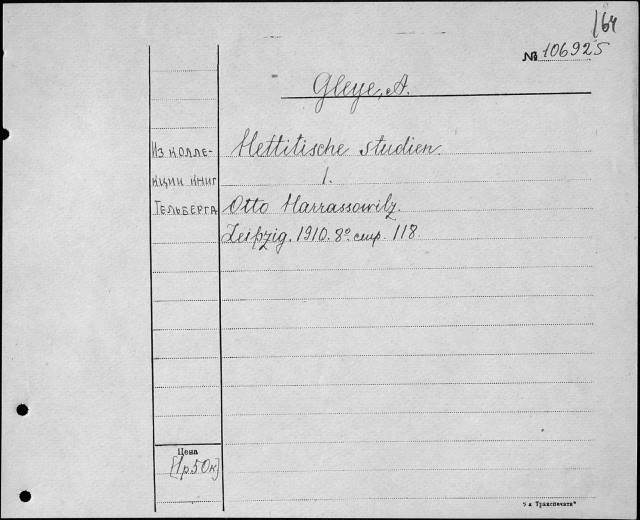 164
№ 106925
Gleye, A.
Из колле-
кции книг
Гельберга
Hettitische studien.
1.
Otto Harrassowitz.
Leipzig. 1910. 8º. стр. 118
Цена
[1р.50к]
5 я Транспечати"